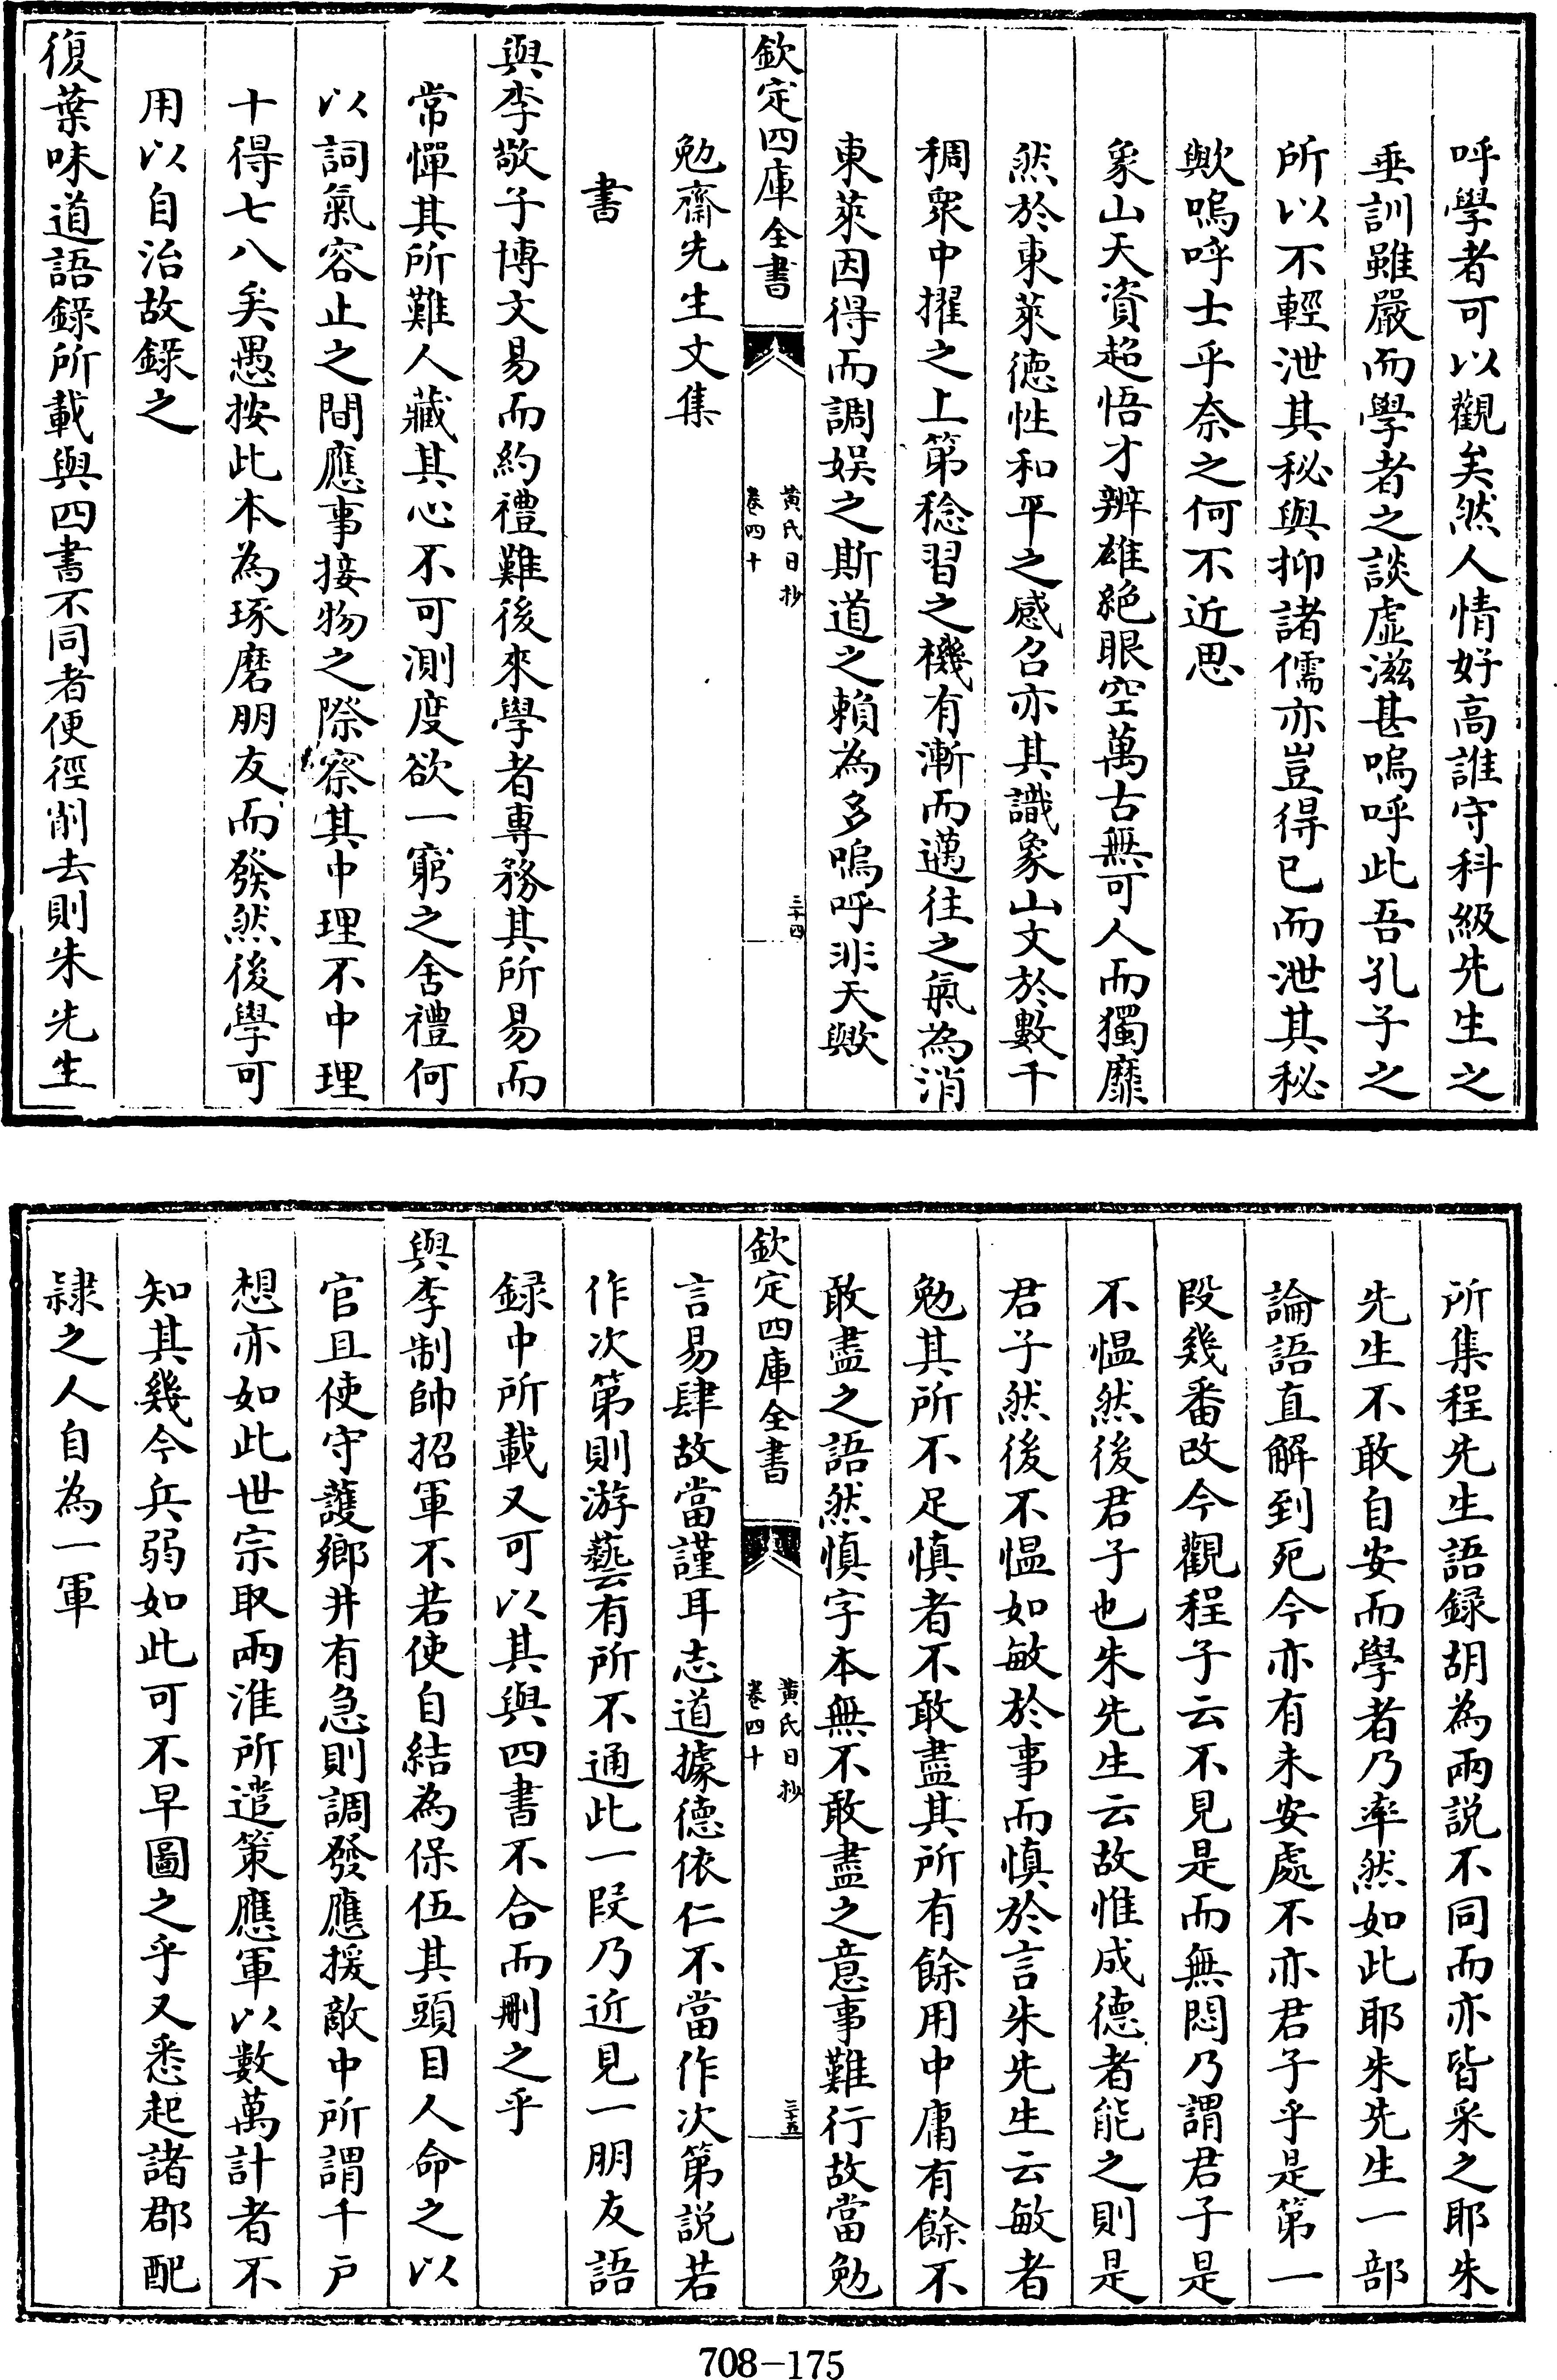 呼學者可以觀矣然人情好高誰守科級先生之
垂訓雖嚴而學者之談虛滋甚嗚呼此吾孔子之
所以不輕泄其秘與抑諸儒亦豈得已而泄其秘
歟嗚呼士乎奈之何不近思
象山天資超悟才辨雄絶眼空萬古無可人而獨靡
然於東萊德性和平之感召亦其識象山文於數千
稠衆中擢之上第稔習之機有漸而邁往之氣為消
東萊因得而調娱之斯道之賴為多嗚呼非天歟
欽定四庫全書
黄氏日抄
卷四十
三十四
勉齋先生文集
書
與李敬子博文易而約禮難後來學者專務其所易而
常憚其所難人藏其心不可測度欲一窮之舍禮何
以詞氣容止之間應事接物之際察其中理不中理
十得七八矣愚按此本為琢磨朋友而發然後學可
用以自治故録之
復葉味道語錄所載與四書不同者便徑削去則朱先生
所集程先生語録胡為兩説不同而亦皆采之耶朱
先生不敢自安而學者乃率然如此耶朱先生一部
論語直解到死今亦有未安處不亦君子乎是第一
段幾番改今觀程子云不見是而無悶乃謂君子是
不愠然後君子也朱先生云故惟成德者能之則是
君子然後不愠如敏於事而慎於言朱先生云敏者
勉其所不足慎者不敢盡其所有餘用中庸有餘不
敢盡之語然慎字本無不敢盡之意事難行故當勉
欽定四庫全書
黄氏日抄
卷四十
三十五
言易肆故當謹耳志道據德依仁不當作次第説若
作次第則游藝有所不通此一段乃近見一朋友語
録中所載又可以其與四書不合而刪之乎
與李制帥招軍不若使自結為保伍其頭目人命之以
官且使守護鄉井有急則調發應援敵中所謂千戶
想亦如此世宗取兩淮所遣策應軍以數萬計者不
知其幾今兵弱如此可不早圖之乎又悉起諸郡配
隷之人自為一軍
708-175